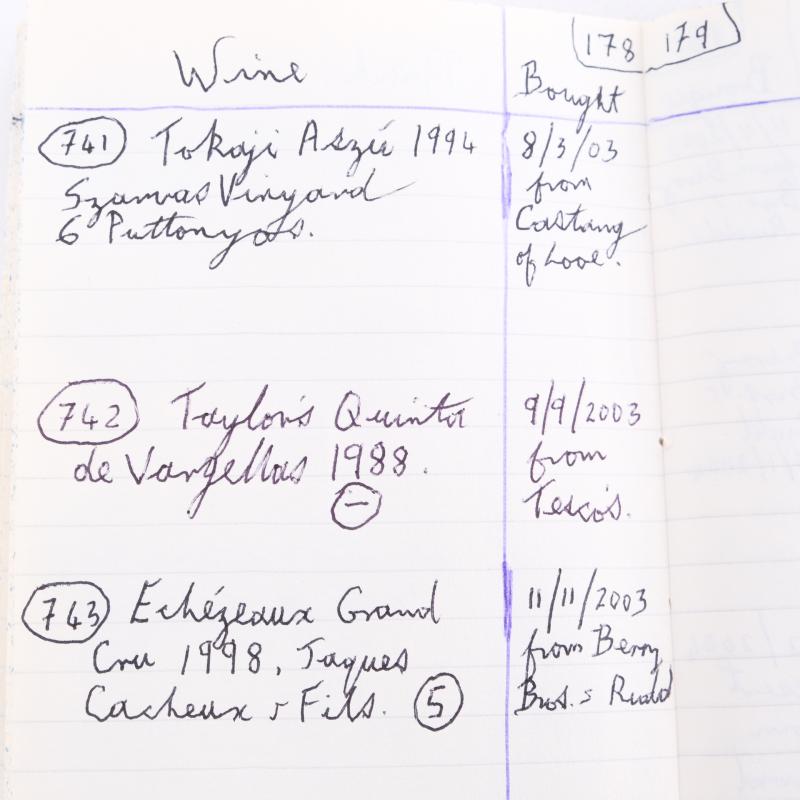 178 179
Wine
Bought
741 Tokaji Aszú 1994
Szarvas Vinyard
6 Puttonyos.
8/3/03
from
Castang
of Looe.
742 Taylor's Quinta
de Vargellas 1988.
–
9/9/2003
from
Tesco's.
743 Echézeaux Grand
Cru 1998, Jaques
Cacheux & Fils. 5
11/11/2003
from Berry
Bros. & Rudd